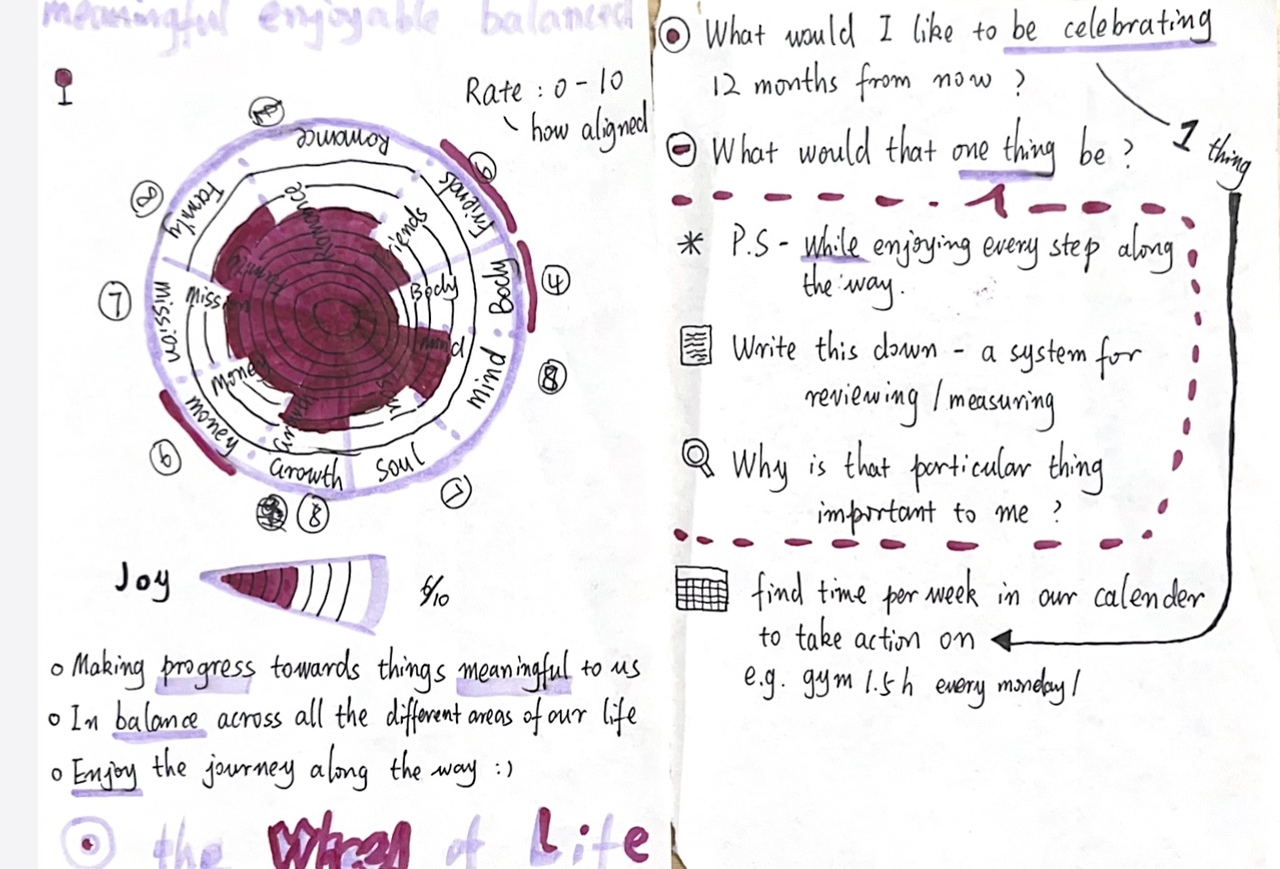 meaningful enjoyable balanced
Rate : 0 - 10
how aligned
Romance
Friends
Body
Mind
Soul
Growth
Money
Mission
Family
Romance
Friends
Body
Mind
Growth
Money
Mission
Family
4
8
7
8
7
Joy
6/10
Making progress towards things meaningful to us
In balance across all the different areas of our life
Enjoy the journey along the way :)
the Wheel of Life
What would I like to be celebrating
12 months from now ?
1 thing
What would that one thing be ?
* P.S - while enjoying every step along
the way.
Write this down - a system for
reviewing / measuring
Why is that particular thing
important to me ?
find time per week in our calender
to take action on
e.g. gym 1.5 h every monday /